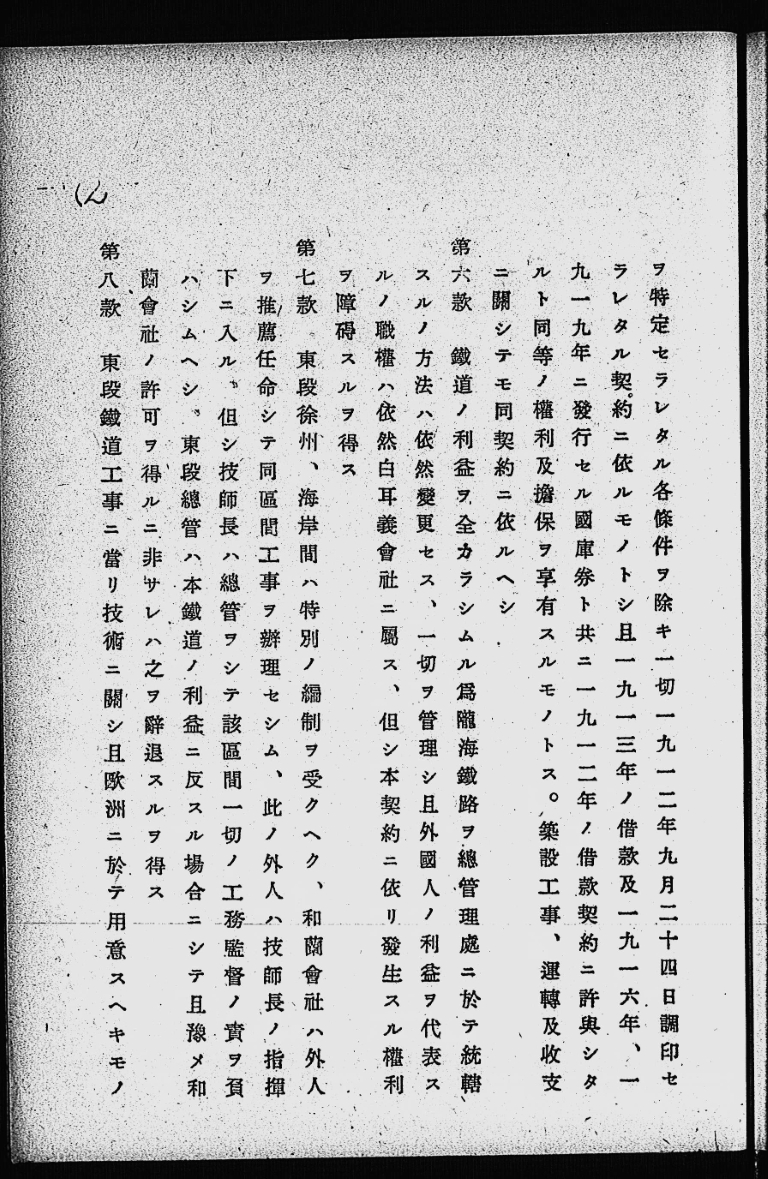 ヲ特定セラレタル各條件ヲ除キ一切一九一二年九月二十四日調印セ
ラレタル契約ニ依ルモノトシ且一九一三年ノ借款及一九一六年、一
九一九年ニ發行セル國庫券ト共ニ一九一二年ノ借款契約ニ許與シタ
ルト同等ノ權利及擔保ヲ享有スルモノトス。築設工事、運轉及收支
ニ關シテモ同契約ニ依ルヘシ
第六款　鐵道ノ利益ヲ全カラシムル爲隴海鐵路ヲ總管理處ニ於テ統轄
スルノ方法ハ依然變更セス、一切ヲ管理シ且外國人ノ利益ヲ代表ス
ルノ職權ハ依然白耳義會社ニ屬ス、但シ本契約ニ依リ發生スル權利
ヲ障碍スルヲ得ス
第七款　東段徐州、海岸間ハ特別ノ編制ヲ受クヘク、和蘭會社ハ外人
ヲ推薦任命シテ同區間工事ヲ辦理セシム、此ノ外人ハ技師長ノ指揮
下ニ入ル、但シ技師長ハ總管ヲシテ該區間一切ノ工務監督ノ責ヲ負
ハシムヘシ。東段總管ハ本鐵道ノ利益ニ反スル場合ニシテ且豫メ和
蘭會社ノ許可ヲ得ルニ非サレハ之ヲ辭退スルヲ得ス
第八款　東段鐵道工事ニ當リ技術ニ關シ且歐洲ニ於テ用意スヘキモノ